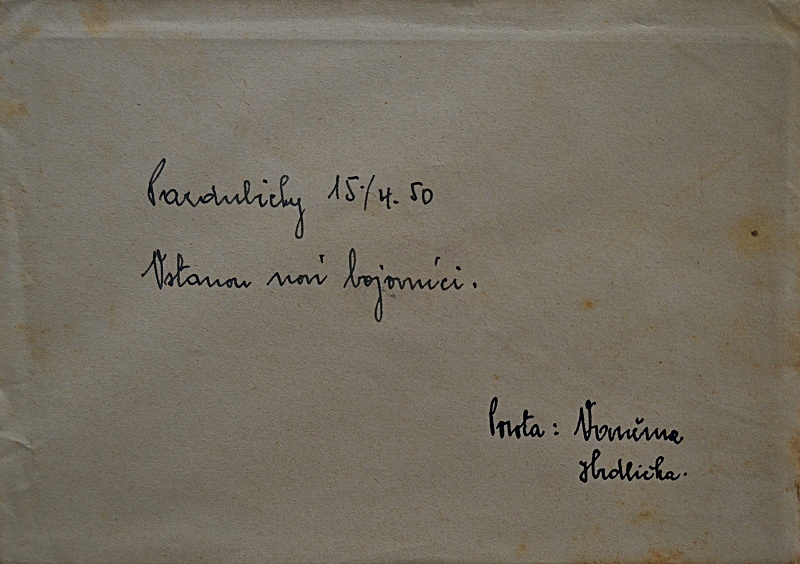 Pardubičky 15./4. 50
Vstanou noví bojovníci.
Porota: Vaněčna
Hrdlička.